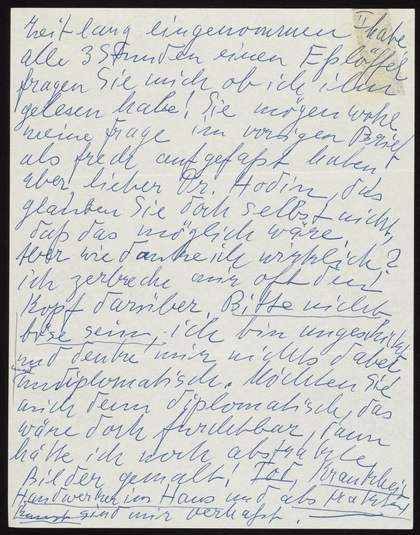 Zeit lang eingenommen habe
alle 3 Stunden einen Eßlöffel
fragen Sie mich ob ich ihn
gelesen habe! Sie mögen wohl
meine Frage im vorigen Brief
als frech aufgefaßt haben,
aber lieber Dr. Hodin, das
glauben Sie doch selbst nicht,
daß das möglich wäre
Aber wie danke ich wirklich?
ich zerbreche mir oft den
Kopf darüber. Bitte nicht
böse sein, ich bin ungeschickt
und denke mir nichts dabei
undiplomatisch. Möchten Sie
mich denn diplomatisch, das
wäre doch furchtbar, dann
hätte ich noch abstrakte
Bilder gemalt! Tod, Krankheit
Handwerker im Haus und abstrakte
Kunst sind mir verhaßt.